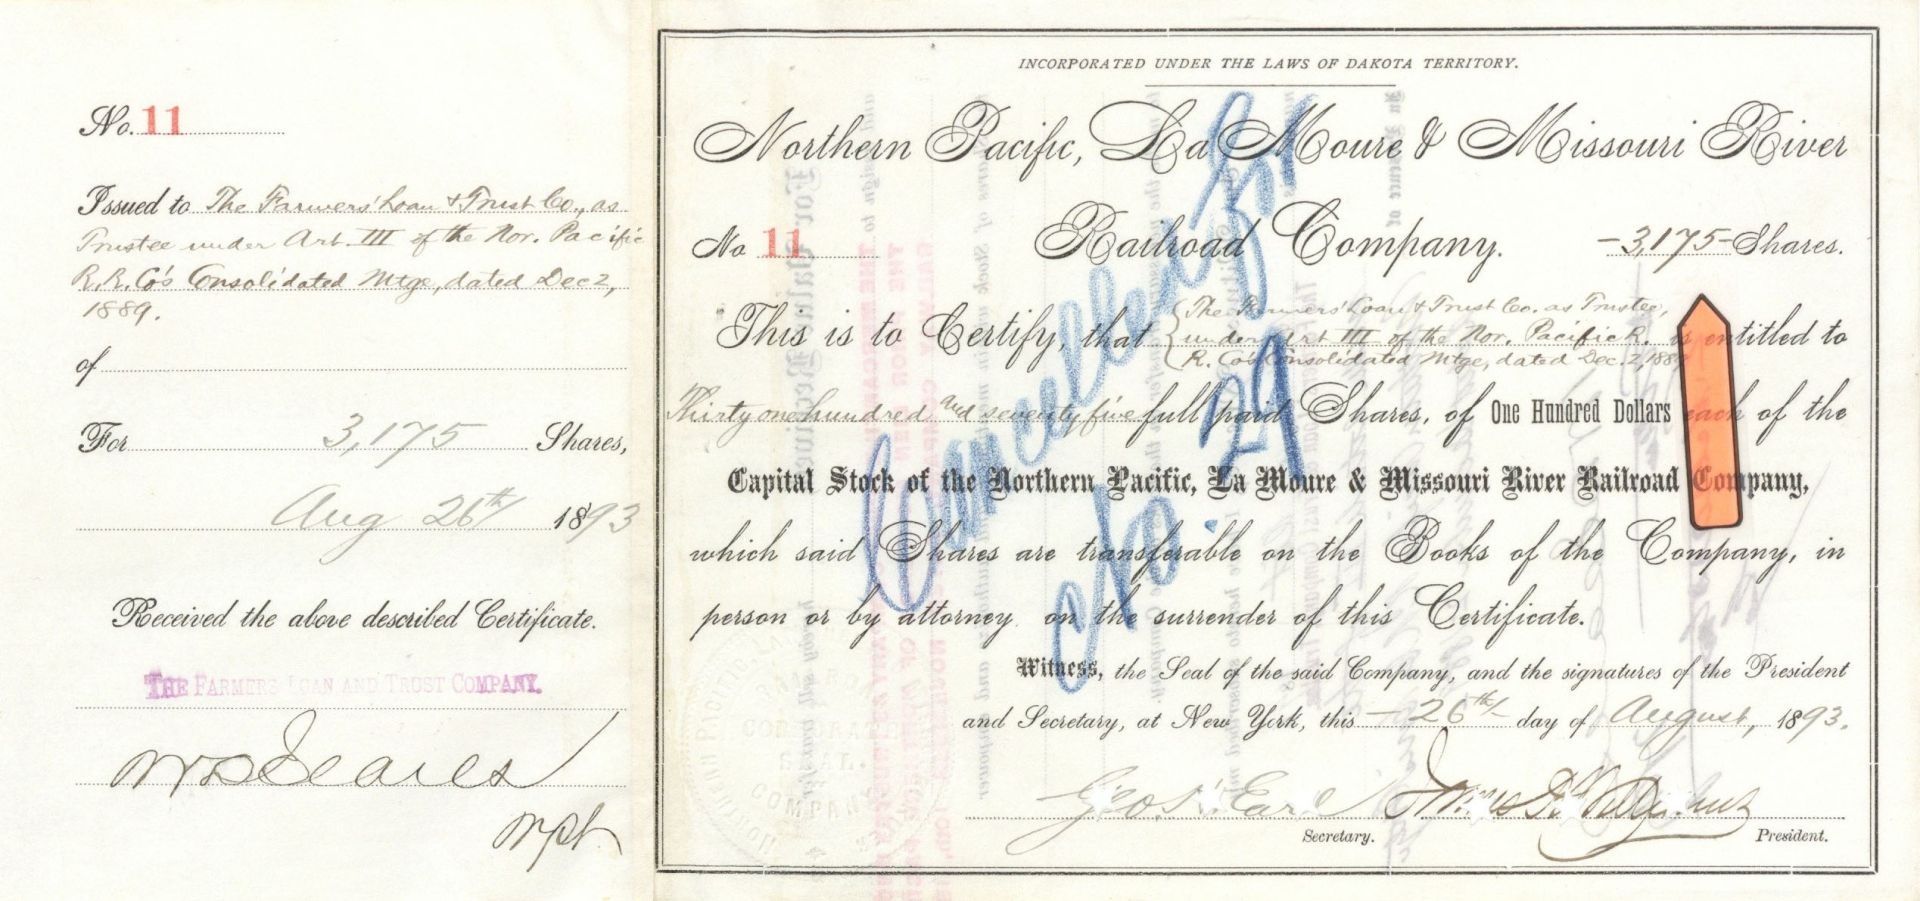 No. 11
Issued to The Farmers' Loan & Trust Co., as
Trustee under Art. III of the Nor. Pacific
R. R. Co's Consolidated Mtge, dated Dec 2,
1889.
of
For 3,175 Shares,
Aug 26th 1893
Received the above described Certificate.
THE FARMERS LOAN AND TRUST COMPANY.
INCORPORATED UNDER THE LAWS OF DAKOTA TERRITORY.
Northern Pacific, La Moure & Missouri River
No 11 Railroad Company. -3,175- Shares.
This is to Certify, that The Farmers' Loan & Trust Co. as Trustee, under Art III of the Nor. Pacific R. R. Co's Consolidated Mtge, dated Dec. 2, 1889 is entitled to
Thirty one hundred and seventy five full paid Shares, of One Hundred Dollars each of the
Capital Stock of the Northern Pacific, La Moure & Missouri River Railroad Company,
which said Shares are transferable on the Books of the Company, in
person or by attorney on the surrender of this Certificate.
Witness, the Seal of the said Company, and the signatures of the President
and Secretary, at New York, this -26th- day of August, 1893.
Geo. S. Earl
Secretary. President.
Cancelled By
No. 29
CORPORATE
SEAL.
COMPANY